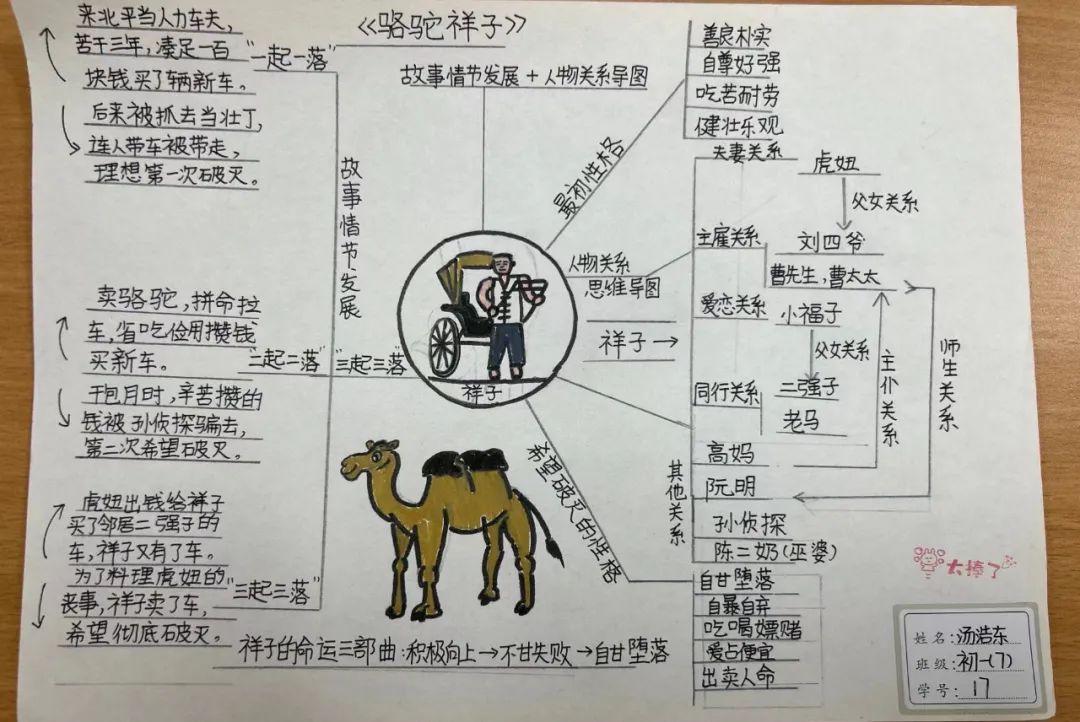 《骆驼祥子》
故事情节发展+人物关系导图
来北平当人力车夫,
苦干三年,凑足一百
块钱买了辆新车。
后来被抓去当壮丁,
连人带车被带走,
理想第一次破灭。
"一起一落"
故事情节发展
卖骆驼,拼命拉
车,省吃俭用攒钱
买新车。
干包月时,辛苦攒的
钱被孙侦探骗去,
第二次希望破灭。
"二起二落"
"三起三落"
虎妞出钱给祥子
买了邻居二强子的
车,祥子又有了车。
为了料理虎妞的
丧事,祥子卖了车,
希望彻底破灭。
"三起三落"
祥子
最初性格
善良朴实
自尊好强
吃苦耐劳
健壮乐观
人物关系
思维导图
祥子→
夫妻关系
虎妞
父女关系
主雇关系
刘四爷
曹先生,曹太太
爱恋关系
小福子
父女关系
同行关系
二强子
老马
主仆关系
师生关系
其他关系
高妈
阮明
孙侦探
陈二奶(巫婆)
希望破灭的性格
自甘堕落
自暴自弃
吃喝嫖赌
爱占便宜
出卖人命
祥子的命运三部曲:积极向上→不甘失败→自甘堕落
太棒了
姓名:汤浩东
班级:初一(7)
学号:17